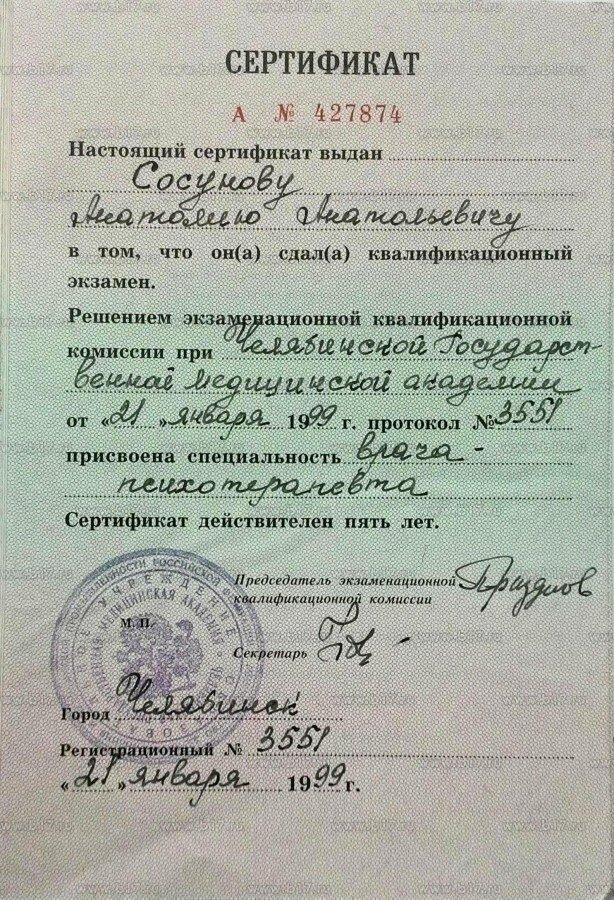 СЕРТИФИКАТ
А № 427874
Настоящий сертификат выдан
Сосунову
Анатолию Анатольевичу
в том, что он(а) сдал(а) квалификационный
экзамен.
Решением экзаменационной квалификационной
комиссии при Челябинской Государст-
венной медицинской академии
от «21» января 1999 г. протокол № 3551
присвоена специальность врача-
психотерапевта
Сертификат действителен пять лет.
Председатель экзаменационной
квалификационной комиссии
М.П.
Секретарь
Город Челябинск
Регистрационный № 3551
«21» января 1999 г.
www.b17.ru